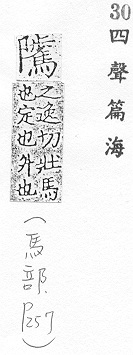 30 四聲篇海
隲
之逸切壯馬
也定也升也
(馬部. P257)